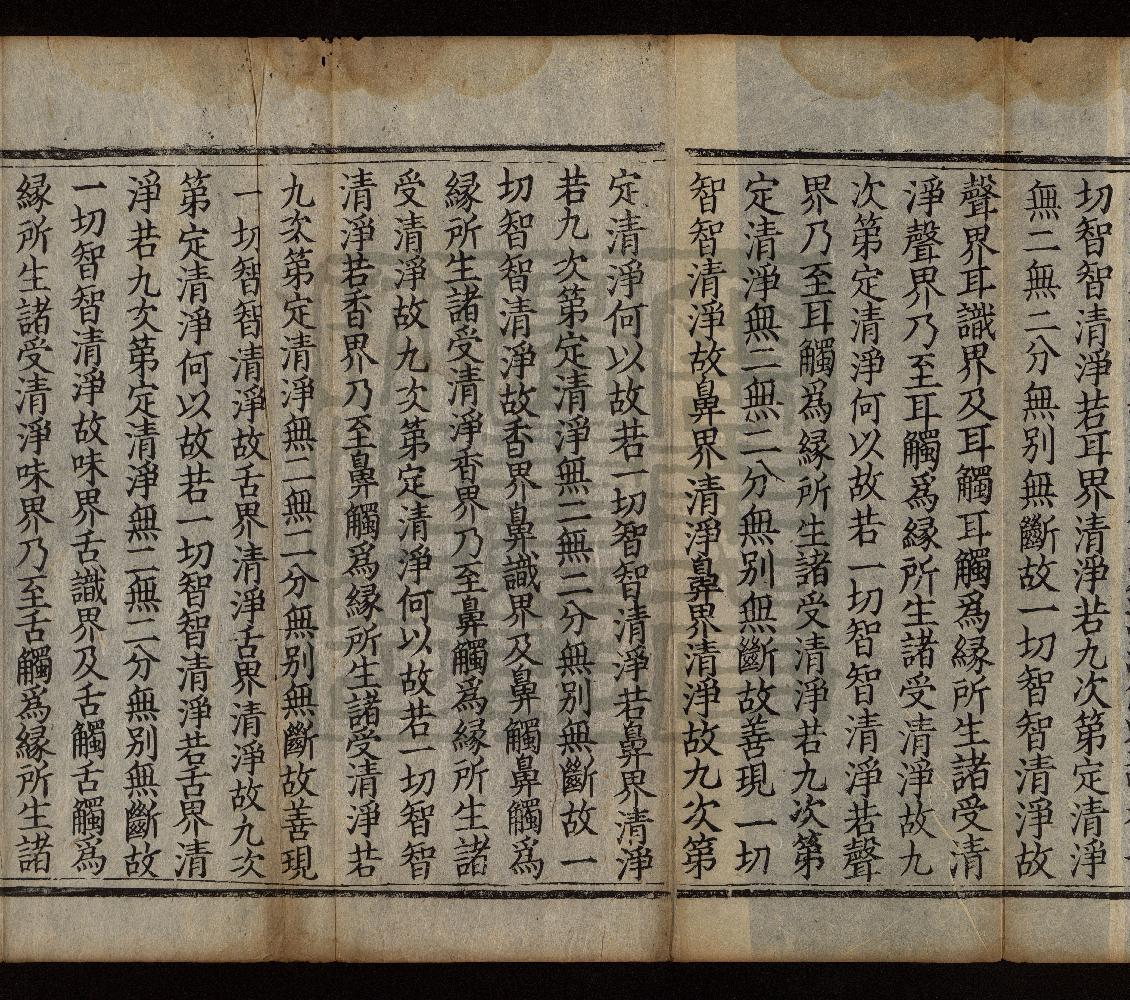 切智智清淨若耳界清淨若九次第定清淨
無二無二分無別無斷故一切智智清淨故
聲界耳識界及耳觸耳觸爲緣所生諸受清
淨聲界乃至耳觸爲緣所生諸受清淨故九
次第定清淨何以故若一切智智清淨若聲
界乃至耳觸爲緣所生諸受清淨若九次第
定清淨無二無二分無別無斷故善現一切
智智清淨故鼻界清淨鼻界清淨故九次第
定清淨何以故若一切智智清淨若鼻界清淨
若九次第定清淨無二無二分無別無斷故一
切智智清淨故香界鼻識界及鼻觸鼻觸爲
緣所生諸受清淨香界乃至鼻觸爲緣所生諸
受清淨故九次第定清淨何以故若一切智智
清淨若香界乃至鼻觸爲緣所生諸受清淨若
九次第定清淨無二無二分無別無斷故善現
一切智智清淨故舌界清淨舌界清淨故九次
第定清淨何以故若一切智智清淨若舌界清
淨若九次第定清淨無二無二分無別無斷故
一切智智清淨故味界舌識界及舌觸舌觸爲
緣所生諸受清淨味界乃至舌觸爲緣所生諸